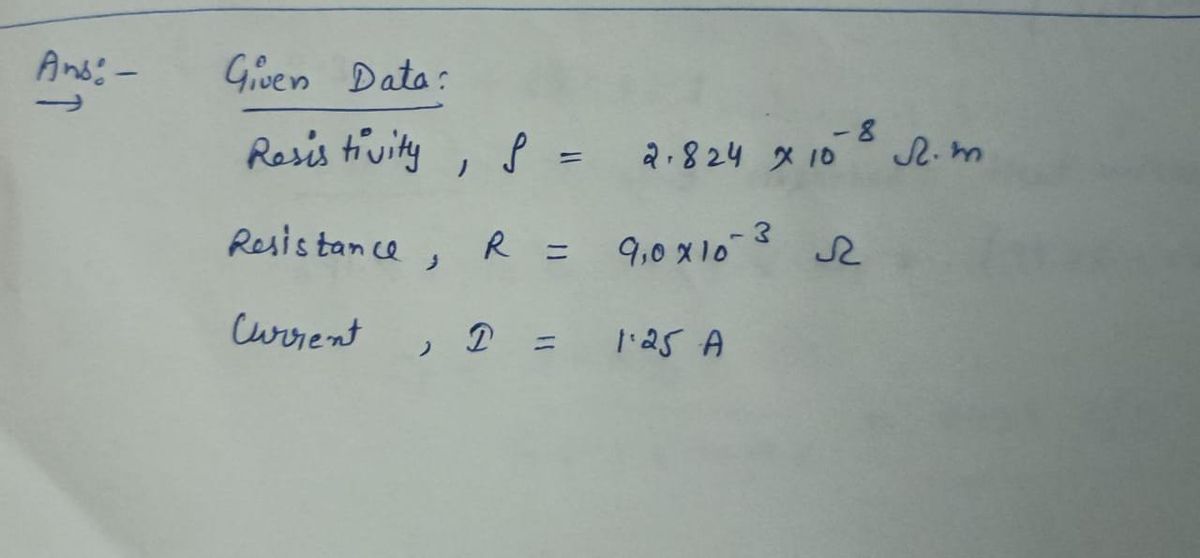 Ans:- Given Data:
Resistivity, ρ = 2.824 × 10⁻⁸ Ω.m
Resistance, R = 9,0 × 10⁻³ Ω
Current, I = 1.25 A